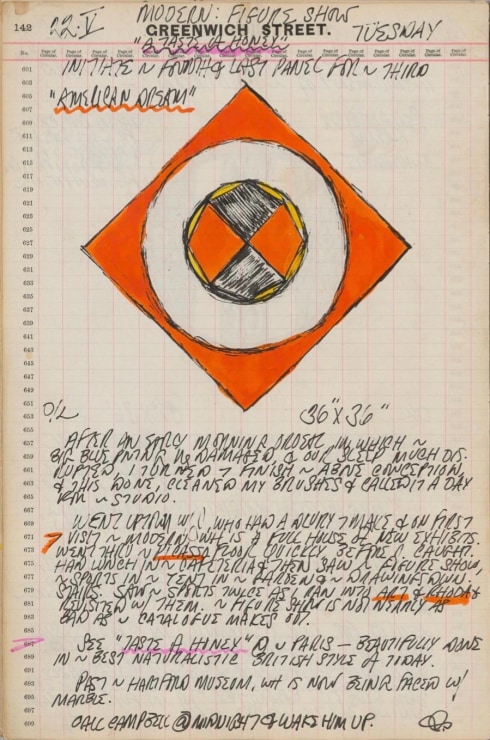 142
22.V
MODERN: FIGURE SHOW
GREENWICH STREET.
TUESDAY
"A TASTE OF HONEY"
No.
Page of Circular. Page of Circular. Page of Circular. Page of Circular. Page of Circular. Page of Circular. Page of Circular. Page of Circular. Page of Circular. Page of Circular.
INITIATE ~ FOURTH & LAST PANEL FOR ~ THIRD
"AMERICAN DREAM"
601
603
605
607
609
611
613
615
617
619
621
623
625
627
629
631
633
635
637
639
641
643
645
647
649
651
653
655
657
659
661
663
665
667
669
671
673
675
677
679
681
683
685
687
689
691
693
695
697
699
OIL
36" X 36"
AFTER AN EARLY MORNING ORDEAL IN WHICH ~
BIG BLUE PNTNG IS DAMAGED, & OUR SLEEP MUCH DIS-
RUPTED, I TURNED 7 FINISH ~ ABOVE CONCEPTION,
& THIS DONE, CLEANED MY BRUSHES & CALLED IT A DAY
~ STUDIO.
WENT UPTOWN W/ , WHO HAD A DLVRY 7 MAKE & ON FIRST
7 VISIT ~ MODERN, WH IS A FULL HOUSE OF NEW EXHIBITS.
WENT THRU ~ FLOOR QUICKLY, BEFORE CAUGHT.
HAD LUNCH IN ~ CAFETERIA & THEN SAW ~ FIGURE SHOW,
~ SPORTS IN ~ TENT IN ~ GARDEN & ~ DRAWINGS DOWN
STAIRS. SAW ~ SPORTS TWICE AS I RAN INTO &
REVISITED W/ THEM. ~ FIGURE SHOW IS NOT NEARLY AS
BAD AS ~ CATALOGUE MAKES OUT.
SEE "TASTE A HINEY" @ ~ PARIS — BEAUTIFULLY DONE
IN ~ BEST NATURALISTIC BRITISH STYLE OF TODAY.
PAST ~ HARTFORD MUSEUM, WH IS NOW BEING FACED W/
MARBLE.
CALL CAMPBELL @ MIDNIGHT & WAKE HIM UP.